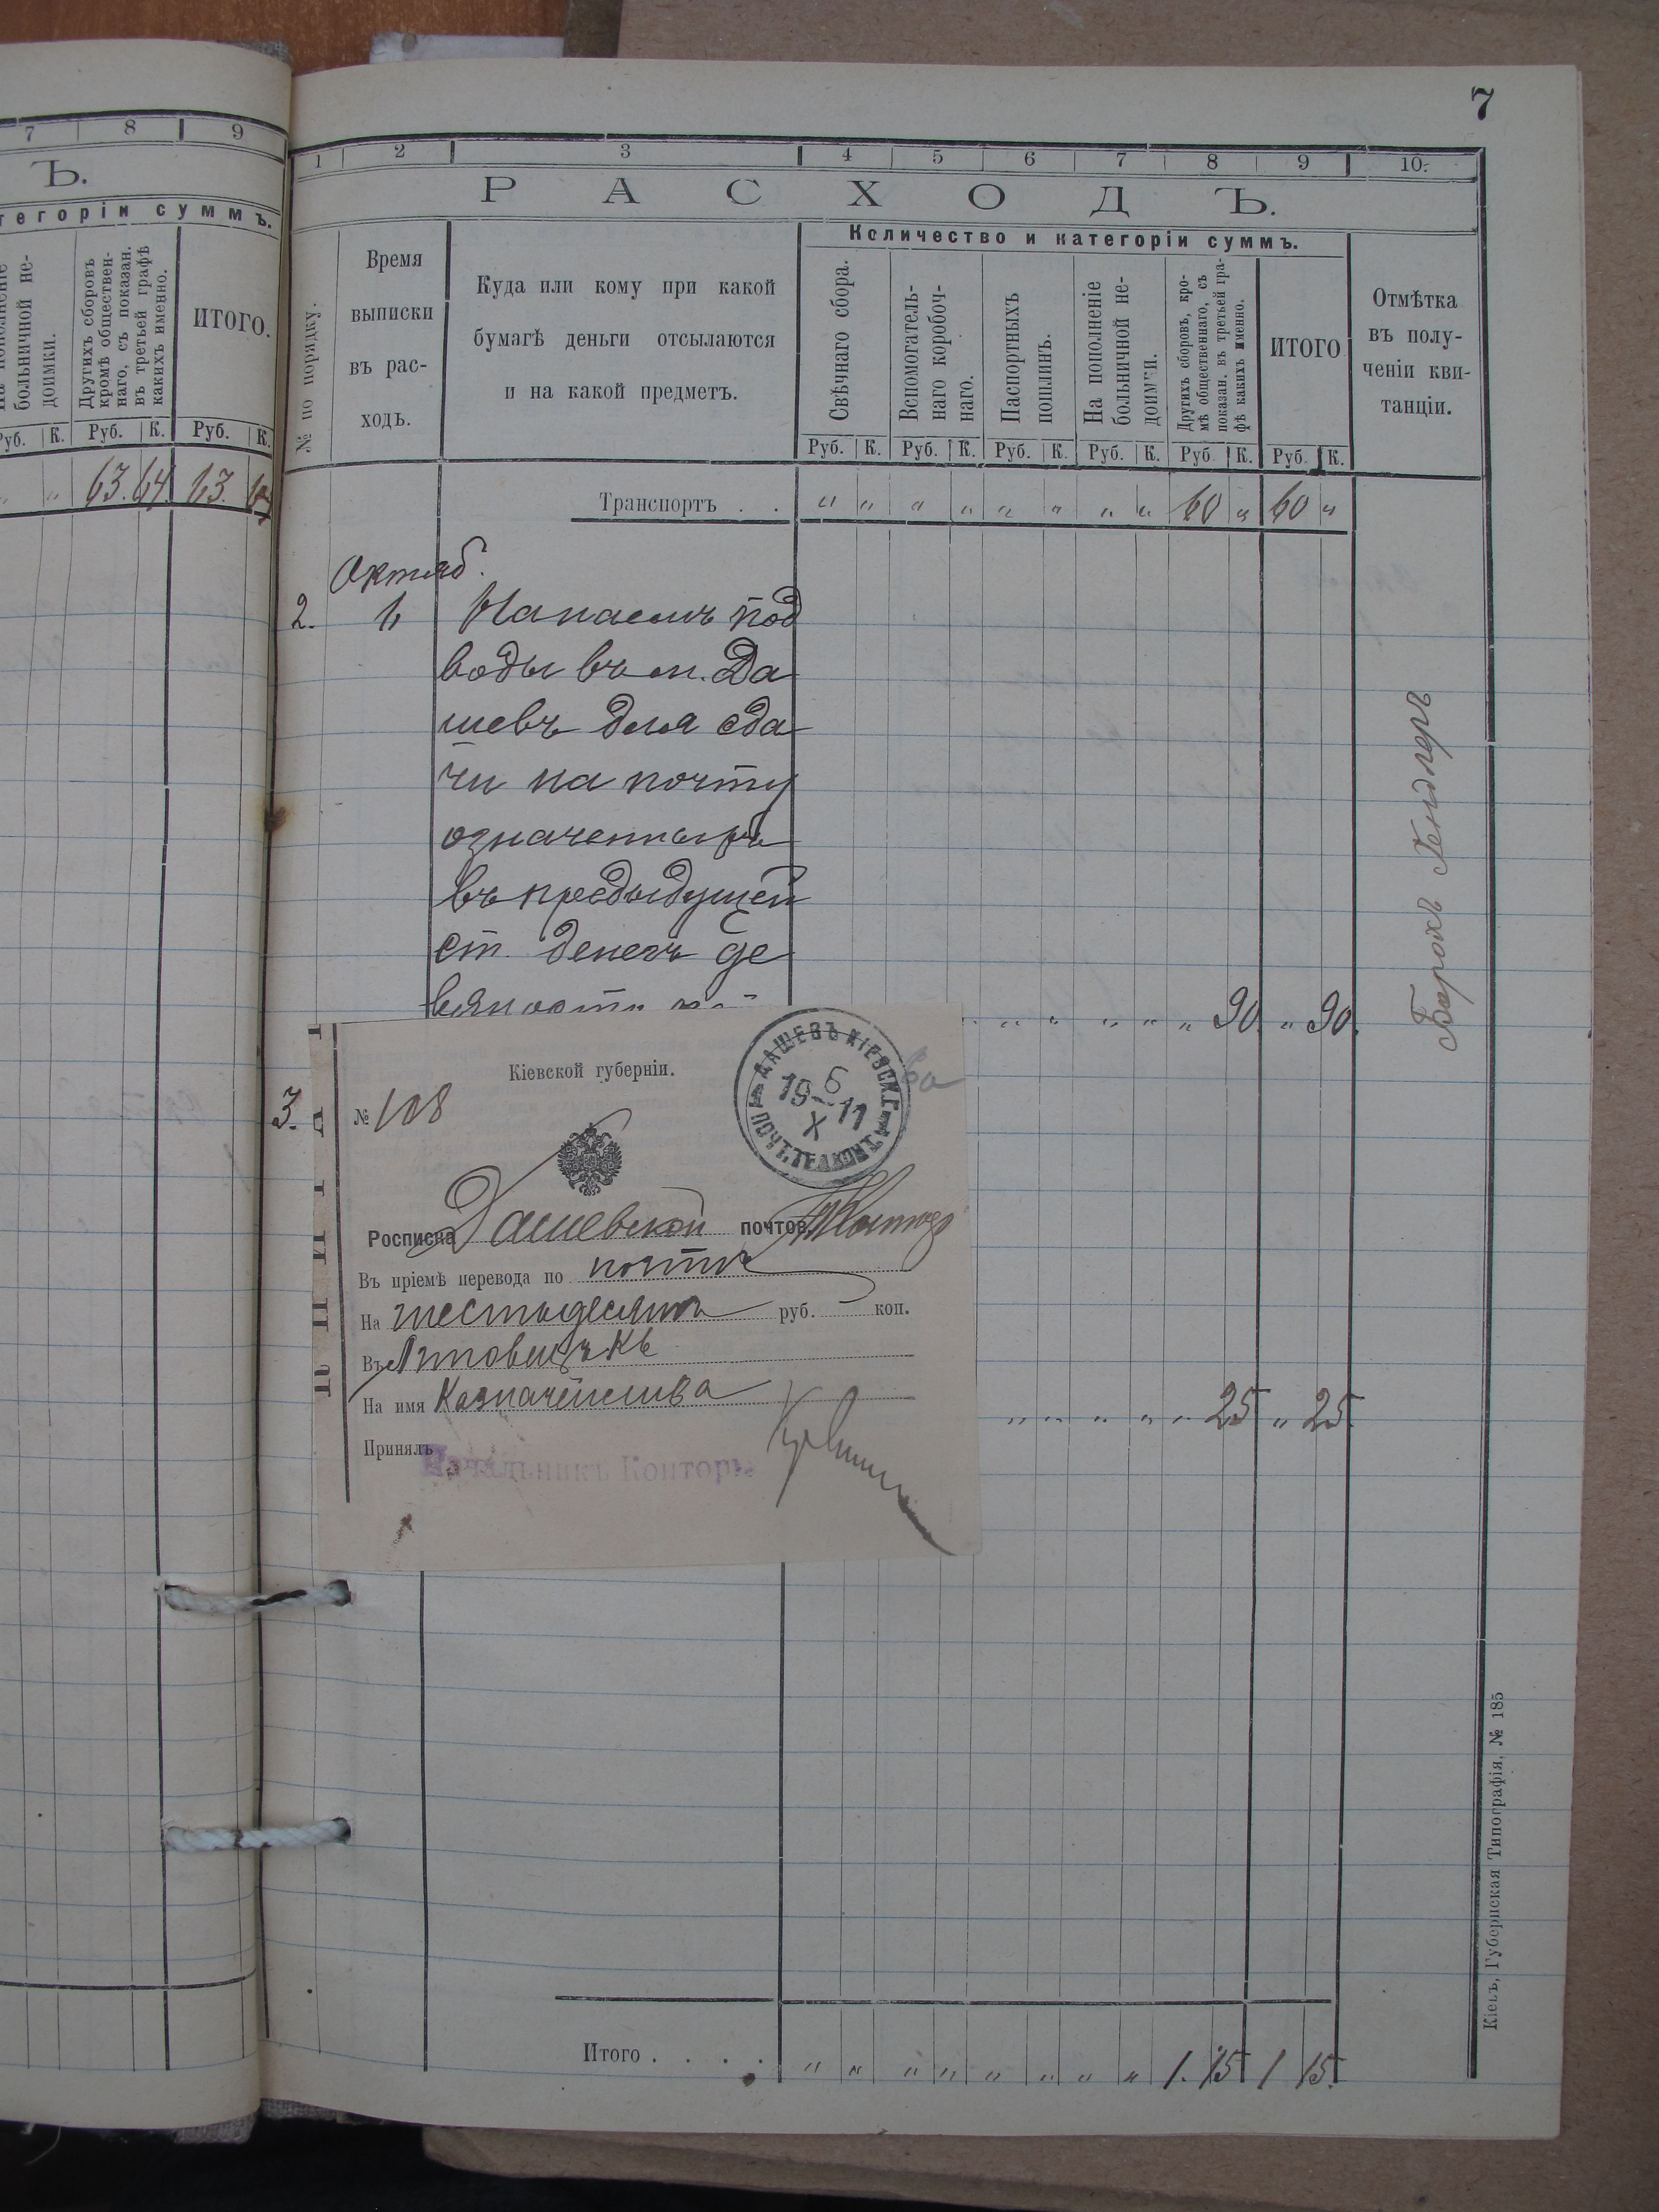 7 8 9
Ъ.
тегоріи суммъ.
больничной не-
доимки.
Другихъ сборовъ
кромѣ обществен-
наго, съ показан.
въ третьей графѣ
какихъ именно.
ИТОГО.
Руб. К. Руб. К. Руб. К.
„ „ 63. 64. 63. 64
7
1 2 3 4 5 6 7 8 9 10.
РАСХОДЪ.
Количество и категоріи суммъ.
№ по порядку.
Время
выписки
въ рас-
ходъ.
Куда или кому при какой
бумагѣ деньги отсылаются
и на какой предметъ.
Свѣчнаго сбора.
Вспомогатель-
наго коробоч-
наго.
Паспортныхъ
пошлинъ.
На пополненіе
больничной не-
доимки.
Другихъ сборовъ, кро-
мѣ общественнаго, съ
показан. въ третьей гра-
фѣ какихъ именно.
ИТОГО
Отмѣтка
въ полу-
ченіи кви-
танціи.
Руб. К. Руб. К. Руб. К. Руб. К. Руб. К. Руб. К.
Транспортъ . . „ „ „ „ „ „ „ „ 60 „ 60 „
Октяб.
2. 6 Нанаемъ под
воды въ м. Да
шевъ для сда
чи на почту
означенныхъ
въ предыдущей
ст. денегъ де
вяносто
„ „ „ „ „ „ 90 „ 90.
Борохъ Гендлеръ
3.
Кіевской губерніи.
№ 108
ДАШЕВЪ КІЕВСК.Г.
6
19 11
X
ПОЧТ.ТЕЛ.КОНТ.
Росписка Дашевской почтов. Т Контор
Въ пріемѣ перевода по почтѣ
На шестьдесятъ руб. коп.
Въ Липовецкъ
На имя Казначейства
Принялъ
Начальникъ Конторы
„ „ „ „ „ „ 25 „ 25.
Итого . . . . „ „ „ „ „ „ „ „ 1. 15 1 15.
Кіевъ, Губернская Типографія, № 185